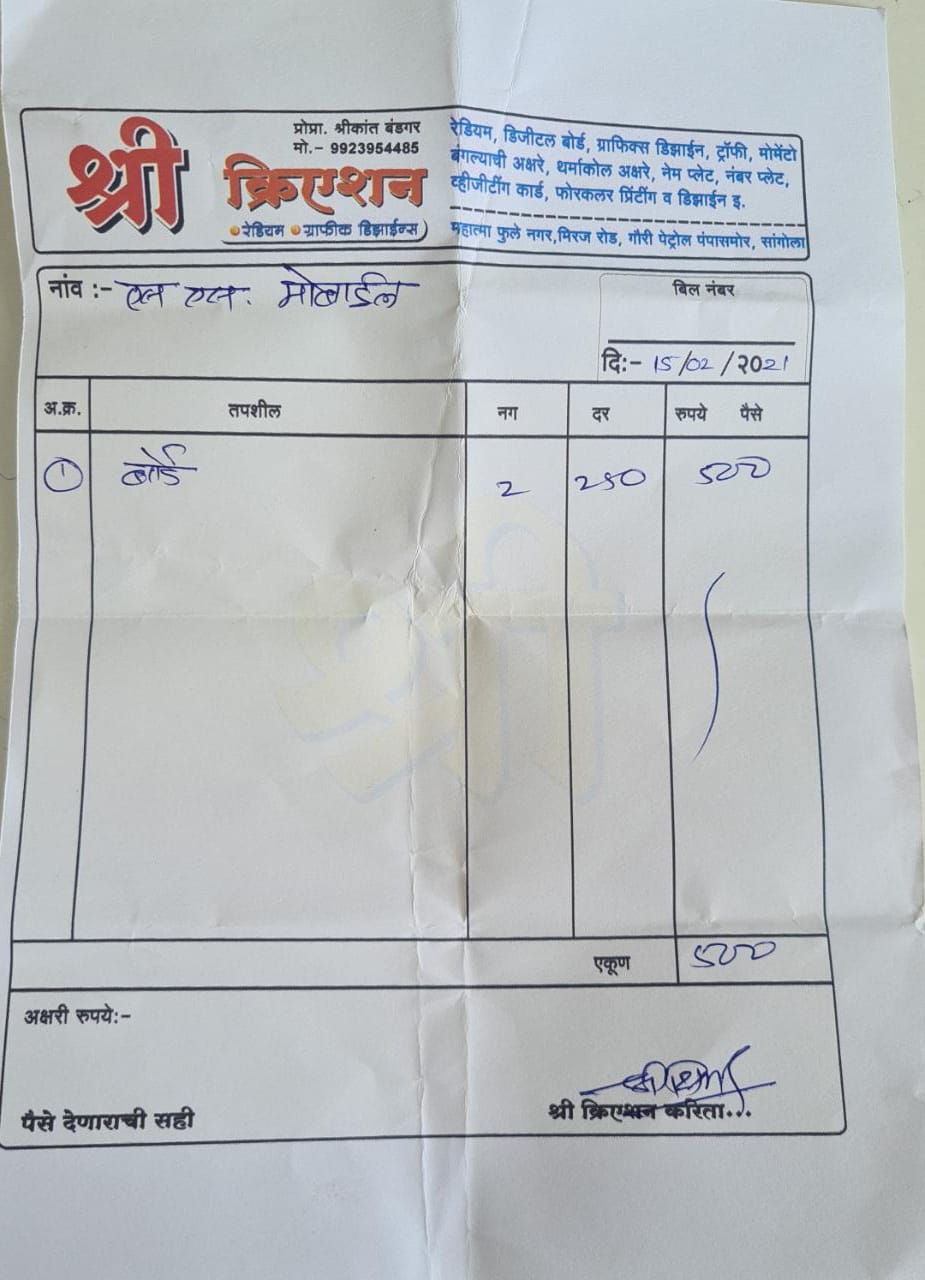 प्रोप्रा. श्रीकांत बंडगर
मो.- 9923954485
श्री क्रिएशन
रेडियम ग्राफीक डिझाईन्स
रेडियम, डिजीटल बोर्ड, ग्राफिक्स डिझाईन, ट्रॉफी, मोमेंटो
बंगल्याची अक्षरे, थर्माकोल अक्षरे, नेम प्लेट, नंबर प्लेट,
व्हीजीटींग कार्ड, फोरकलर प्रिंटींग व डिझाईन इ.
महात्मा फुले नगर,मिरज रोड, गौरी पेट्रोल पंपासमोर, सांगोला
नांव :- एस एस. मोबाईल
बिल नंबर
दि:- 15/02/२०21
अ.क्र. तपशील नग दर रुपये पैसे
1 बोर्ड 2 250 500
श्री
एकूण 500
अक्षरी रुपये:-
पैसे देणाराची सही
श्री क्रिएशन करिता...